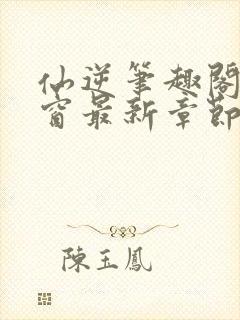 仙逆筆趣閣
窗最新章節
陳玉鳳